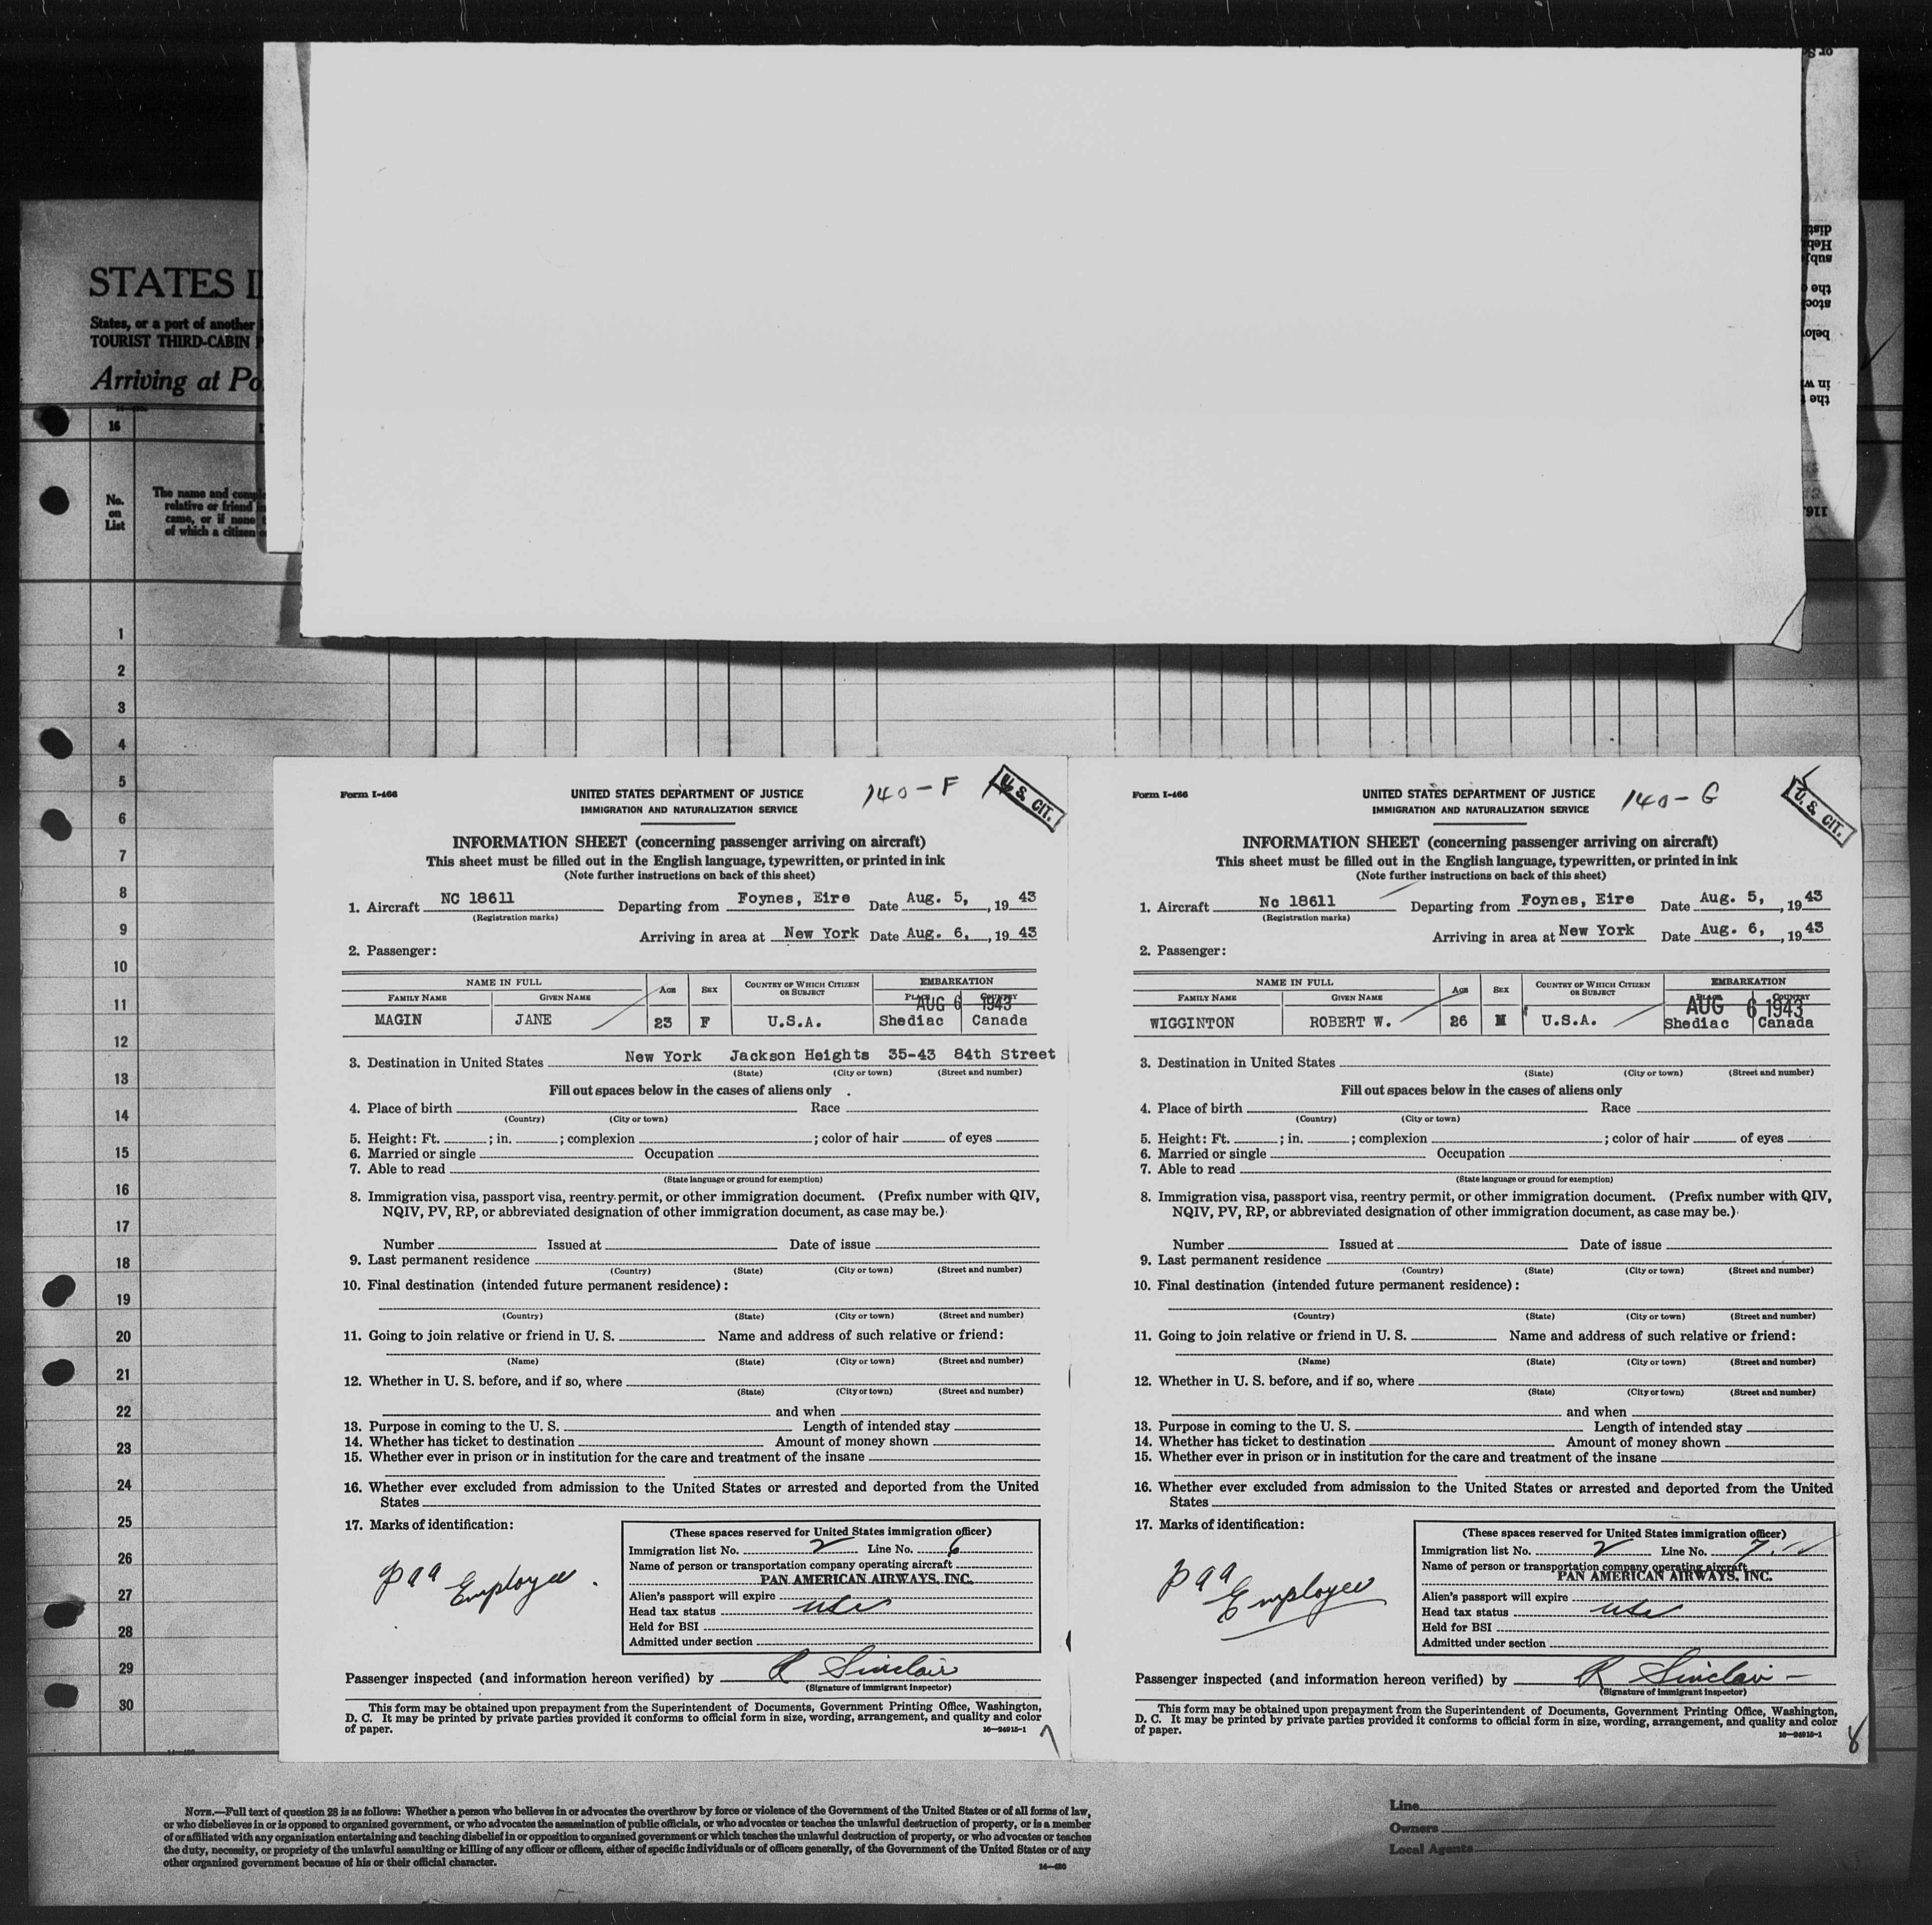 STATES I
States, or a port of another
TOURIST THIRD-CABIN P
Arriving at Po
16
No.
on
List
The name and comple
relative or friend
came, or if none
of which a citizen
1
2
3
4
5
6
7
8
9
10
11
12
13
14
15
16
17
18
19
20
21
22
23
24
25
26
27
28
29
30
Form I-466
UNITED STATES DEPARTMENT OF JUSTICE
140-F
U. S. CIT.
IMMIGRATION AND NATURALIZATION SERVICE
INFORMATION SHEET (concerning passenger arriving on aircraft)
This sheet must be filled out in the English language, typewritten, or printed in ink
(Note further instructions on back of this sheet)
1. Aircraft NC 18611 Departing from Foynes, Eire Date Aug. 5, , 19 43
(Registration marks)
Arriving in area at New York Date Aug. 6, , 19 43
2. Passenger:
NAME IN FULL AGE SEX COUNTRY OF WHICH CITIZEN OR SUBJECT EMBARKATION
FAMILY NAME GIVEN NAME PLACE COUNTRY
AUG 6 1943
MAGIN JANE 23 F U.S.A. Shediac Canada
3. Destination in United States New York Jackson Heights 35-43 84th Street
(State) (City or town) (Street and number)
Fill out spaces below in the cases of aliens only
4. Place of birth Race
(Country) (City or town)
5. Height: Ft. ; in. ; complexion ; color of hair of eyes
6. Married or single Occupation
7. Able to read
(State language or ground for exemption)
8. Immigration visa, passport visa, reentry permit, or other immigration document. (Prefix number with QIV,
NQIV, PV, RP, or abbreviated designation of other immigration document, as case may be.)
Number Issued at Date of issue
9. Last permanent residence
(Country) (State) (City or town) (Street and number)
10. Final destination (intended future permanent residence):
(Country) (State) (City or town) (Street and number)
11. Going to join relative or friend in U. S. Name and address of such relative or friend:
(Name) (State) (City or town) (Street and number)
12. Whether in U. S. before, and if so, where
(State) (City or town) (Street and number)
and when
13. Purpose in coming to the U. S. Length of intended stay
14. Whether has ticket to destination Amount of money shown
15. Whether ever in prison or in institution for the care and treatment of the insane
16. Whether ever excluded from admission to the United States or arrested and deported from the United
States
17. Marks of identification:
paa Employee
(These spaces reserved for United States immigration officer)
Immigration list No. 2 Line No. 6
Name of person or transportation company operating aircraft
PAN AMERICAN AIRWAYS, INC.
Alien's passport will expire
Head tax status usc
Held for BSI
Admitted under section
Passenger inspected (and information hereon verified) by R Sinclair
(Signature of immigrant inspector)
This form may be obtained upon prepayment from the Superintendent of Documents, Government Printing Office, Washington,
D. C. It may be printed by private parties provided it conforms to official form in size, wording, arrangement, and quality and color
of paper.
16—24915-1
7
Form I-466
UNITED STATES DEPARTMENT OF JUSTICE
140-G
U. S. CIT.
IMMIGRATION AND NATURALIZATION SERVICE
INFORMATION SHEET (concerning passenger arriving on aircraft)
This sheet must be filled out in the English language, typewritten, or printed in ink
(Note further instructions on back of this sheet)
1. Aircraft Nc 18611 Departing from Foynes, Eire Date Aug. 5, , 19 43
(Registration marks)
Arriving in area at New York Date Aug. 6, , 19 43
2. Passenger:
NAME IN FULL AGE SEX COUNTRY OF WHICH CITIZEN OR SUBJECT EMBARKATION
FAMILY NAME GIVEN NAME PLACE COUNTRY
AUG 6 1943
WIGGINTON ROBERT W. 26 M U.S.A. Shediac Canada
3. Destination in United States
(State) (City or town) (Street and number)
Fill out spaces below in the cases of aliens only
4. Place of birth Race
(Country) (City or town)
5. Height: Ft. ; in. ; complexion ; color of hair of eyes
6. Married or single Occupation
7. Able to read
(State language or ground for exemption)
8. Immigration visa, passport visa, reentry permit, or other immigration document. (Prefix number with QIV,
NQIV, PV, RP, or abbreviated designation of other immigration document, as case may be.)
Number Issued at Date of issue
9. Last permanent residence
(Country) (State) (City or town) (Street and number)
10. Final destination (intended future permanent residence):
(Country) (State) (City or town) (Street and number)
11. Going to join relative or friend in U. S. Name and address of such relative or friend:
(Name) (State) (City or town) (Street and number)
12. Whether in U. S. before, and if so, where
(State) (City or town) (Street and number)
and when
13. Purpose in coming to the U. S. Length of intended stay
14. Whether has ticket to destination Amount of money shown
15. Whether ever in prison or in institution for the care and treatment of the insane
16. Whether ever excluded from admission to the United States or arrested and deported from the United
States
17. Marks of identification:
paa Employee
(These spaces reserved for United States immigration officer)
Immigration list No. 2 Line No. 7
Name of person or transportation company operating aircraft
PAN AMERICAN AIRWAYS, INC.
Alien's passport will expire
Head tax status usc
Held for BSI
Admitted under section
Passenger inspected (and information hereon verified) by R Sinclair
(Signature of immigrant inspector)
This form may be obtained upon prepayment from the Superintendent of Documents, Government Printing Office, Washington,
D. C. It may be printed by private parties provided it conforms to official form in size, wording, arrangement, and quality and color
of paper.
16—24915-1
8
NOTE.—Full text of question 28 is as follows: Whether a person who believes in or advocates the overthrow by force or violence of the Government of the United States or of all forms of law,
or who disbelieves in or is opposed to organized government, or who advocates the assassination of public officials, or who advocates or teaches the unlawful destruction of property, or is a member
of or affiliated with any organization entertaining and teaching disbelief in or opposition to organized government or which teaches the unlawful destruction of property, or who advocates or teaches
the duty, necessity, or propriety of the unlawful assaulting or killing of any officer or officers, either of specific individuals or of officers generally, of the Government of the United States or of any
other organized government because of his or their official character.
14—430
Line
Owners
Local Agents